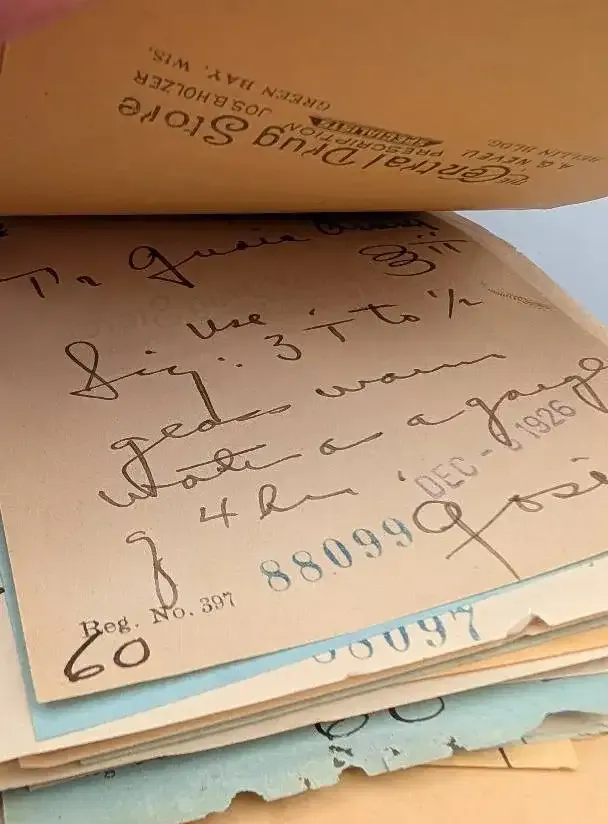 The Central Drug Store
A.G. NEVEU PRESCRIPTION SPECIALISTS JOS. B. HOLZER
BELLIN BLDG. GREEN BAY, WIS.
Tr
℥ ii
Sig: Use ʒ i to 1/2
glass warm
water as a gargle
q 4 hrs.
DEC - 1926
88099
Reg. No. 397
60
88097
60